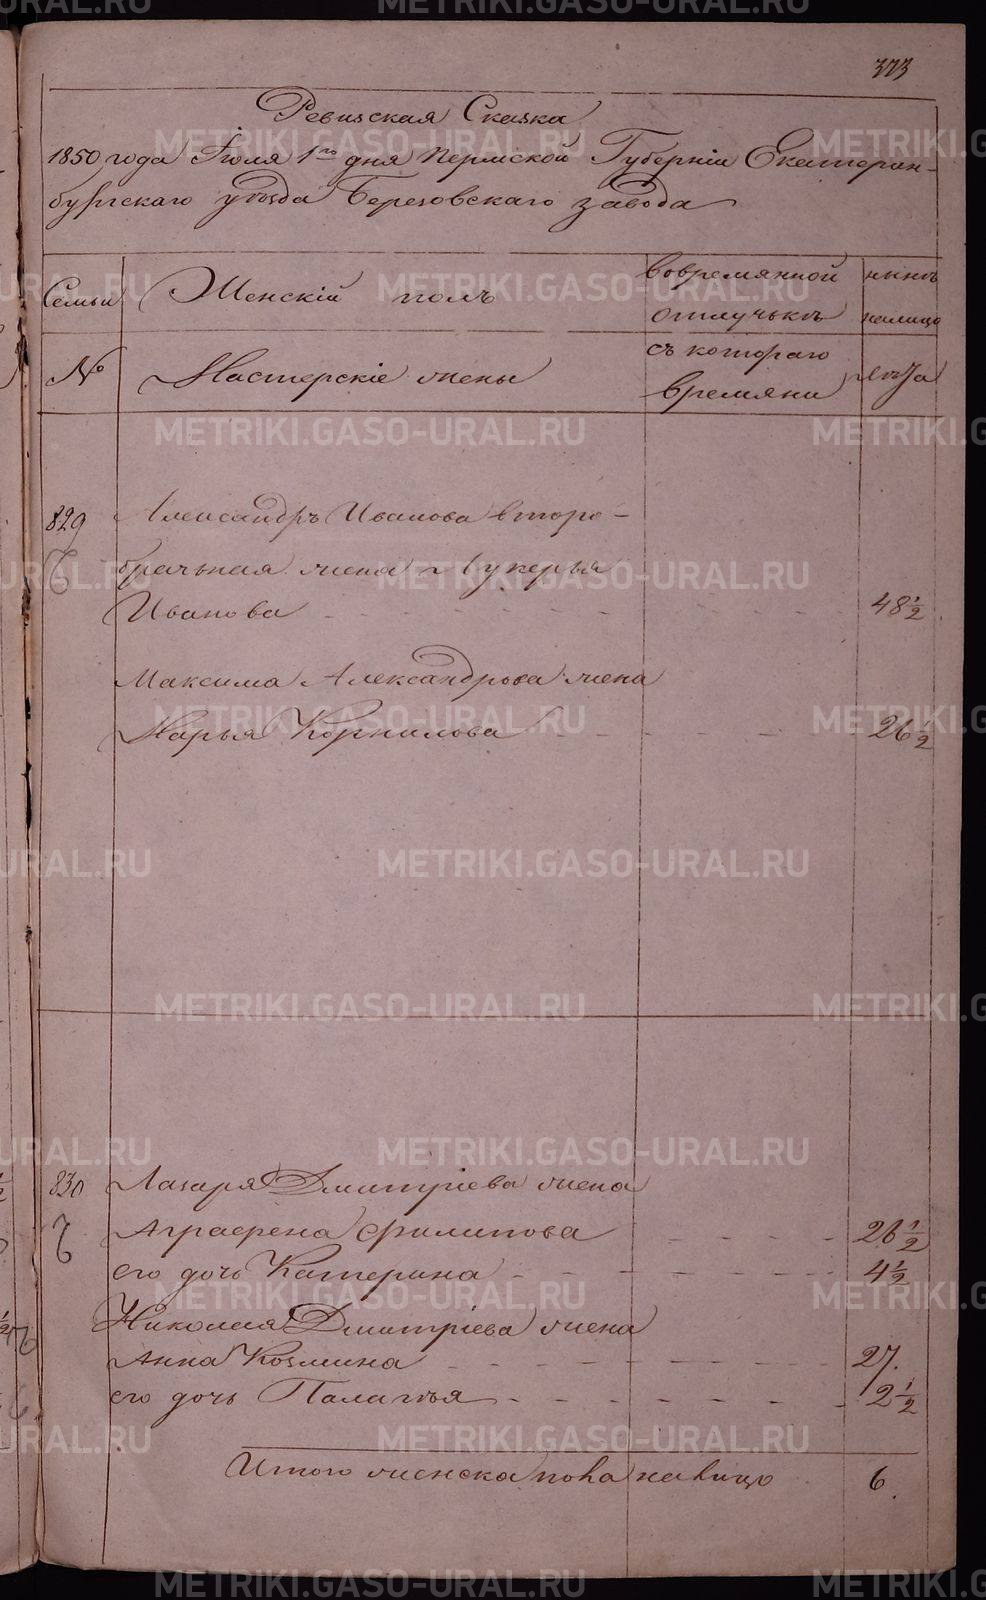 373
Ревизская Сказка
1850 года Іюля 1го дня Пермской Губерніи Екатерин-
бургскаго уѣзда Березовскаго завода
Семьи
Женскій полъ
вовремянной отлучькѣ
нынѣ налицо
№
Мастерскіе жены
съ котораго времяни
лѣта
829
Александръ Иванова второ-
брачьная жена Лукерья
Иванова 48 1/2
Максима Александрова жена
Марья Корнилова 26 1/2
830
Лазаря Дмитріева жена
Аграфена Филипова 26 1/2
его дочь Катерина 4 1/2
Николая Дмитріева жена
Анна Козмина 27.
его дочь Палагѣя 2 1/2
Итого женска пола налицо 6.
METRIKI.GASO-URAL.RU